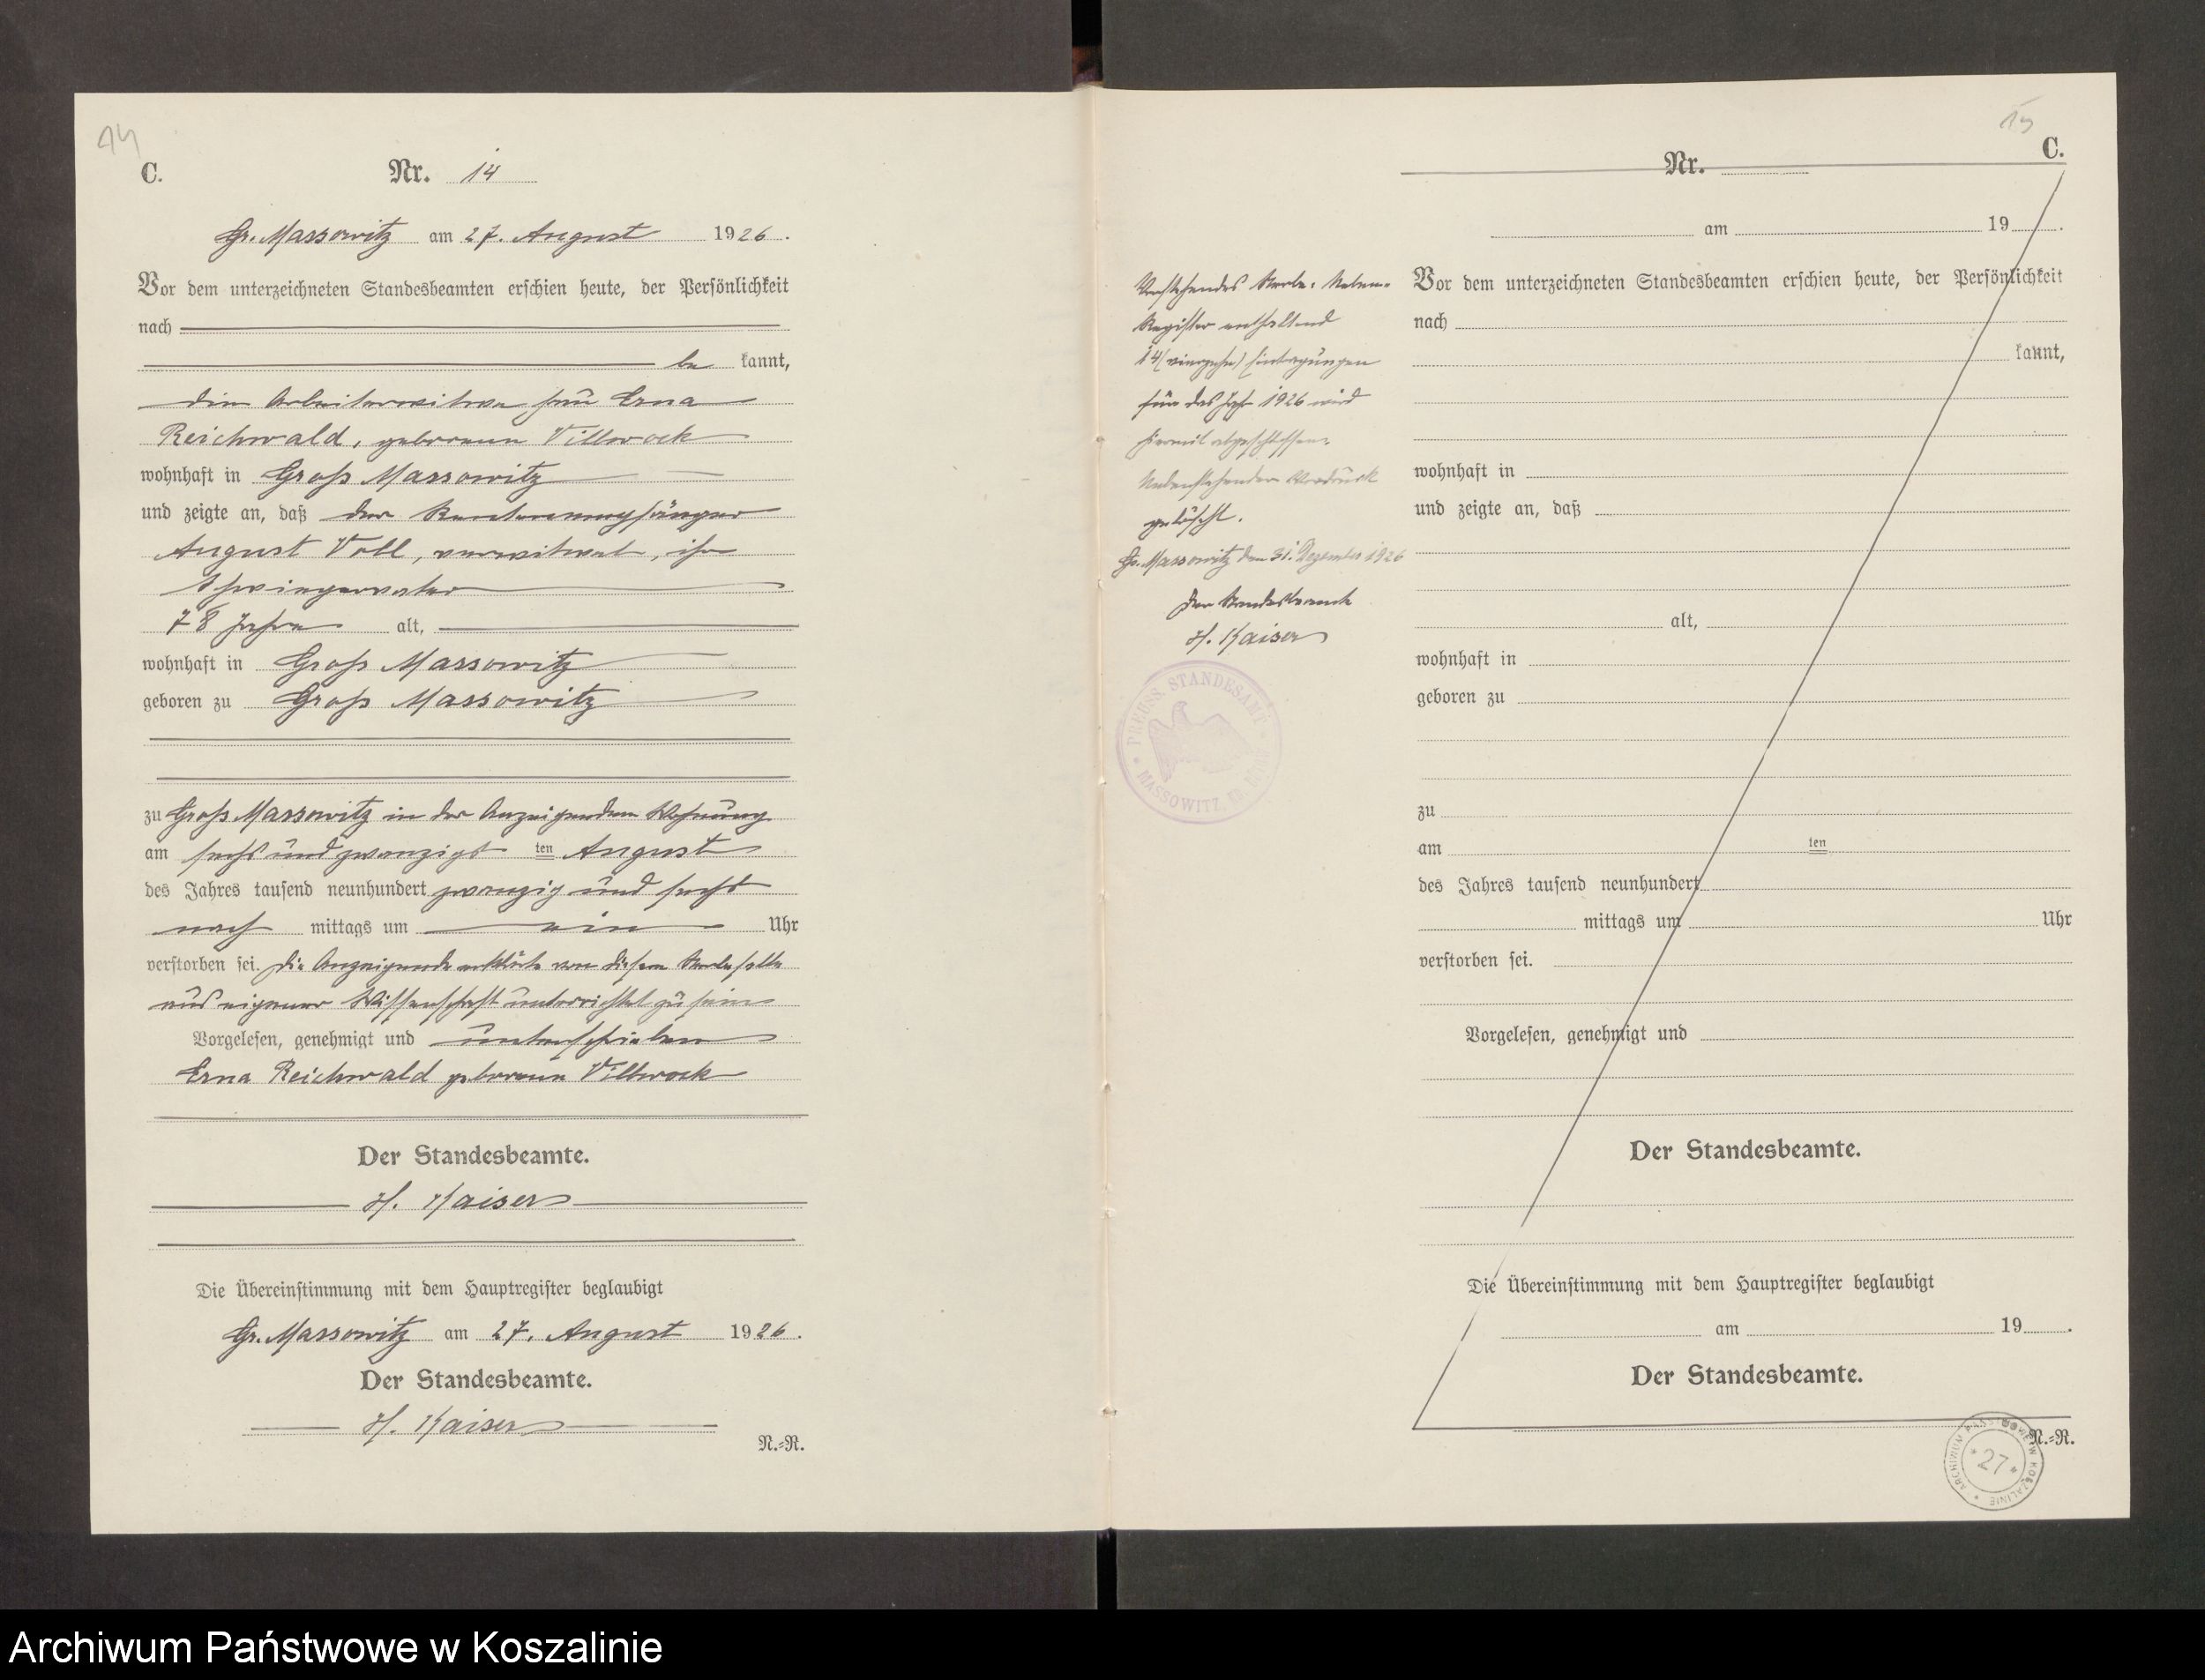 14
C.
Nr. 14
Gr. Massowitz am 27. August 1926.
Vor dem unterzeichneten Standesbeamten erschien heute, der Persönlichkeit
nach
be kannt,
die Arbeiterwitwe frau Erna
Reichwald, geborene Villwock
wohnhaft in Groß Massowitz
und zeigte an, daß der Rentenempfänger
August Voll, verwitwet, ihr
Schwiegervater
78 Jahre alt,
wohnhaft in Groß Massowitz
geboren zu Groß Massowitz
zu Groß Massowitz in der Anzeigenden Wohnung
am sechs und zwanzigs ten August
des Jahres tausend neunhundert zwanzig und sechs
nach mittags um ein Uhr
verstorben sei. Die Anzeigende erklärte von diesem Sterbefalle
aus eigener Wissenschaft unterrichtet zu sein
Vorgelesen, genehmigt und unterschrieben
Erna Reichwald geborene Villwock
Der Standesbeamte.
H. Kaiser
Die Übereinstimmung mit dem Hauptregister beglaubigt
Gr. Massowitz am 27. August 1926.
Der Standesbeamte.
H. Kaiser
N.=R.
Vorstehendes Sterbe= Neben=
Register enthaltend
14 (vierzehn) Eintragungen
für das Jahr 1926 wird
hiermit abgeschlossen.
Nebenstehender Vordruck
gelöscht.
Gr. Massowitz den 31. Dezember 1926
Der Standesbeamte
H. Kaiser
PREUSS. STANDESAMT
MASSOWITZ
15
C.
Nr.
am 19 .
Vor dem unterzeichneten Standesbeamten erschien heute, der Persönlichkeit
nach
kannt,
wohnhaft in
und zeigte an, daß
alt,
wohnhaft in
geboren zu
zu
am ten
des Jahres tausend neunhundert
mittags um Uhr
verstorben sei.
Vorgelesen, genehmigt und
Der Standesbeamte.
Die Übereinstimmung mit dem Hauptregister beglaubigt
am 19 .
Der Standesbeamte.
N.=R.
ARCHIWUM PAŃSTWOWE W KOSZALINIE
* 27 *
Archiwum Państwowe w Koszalinie